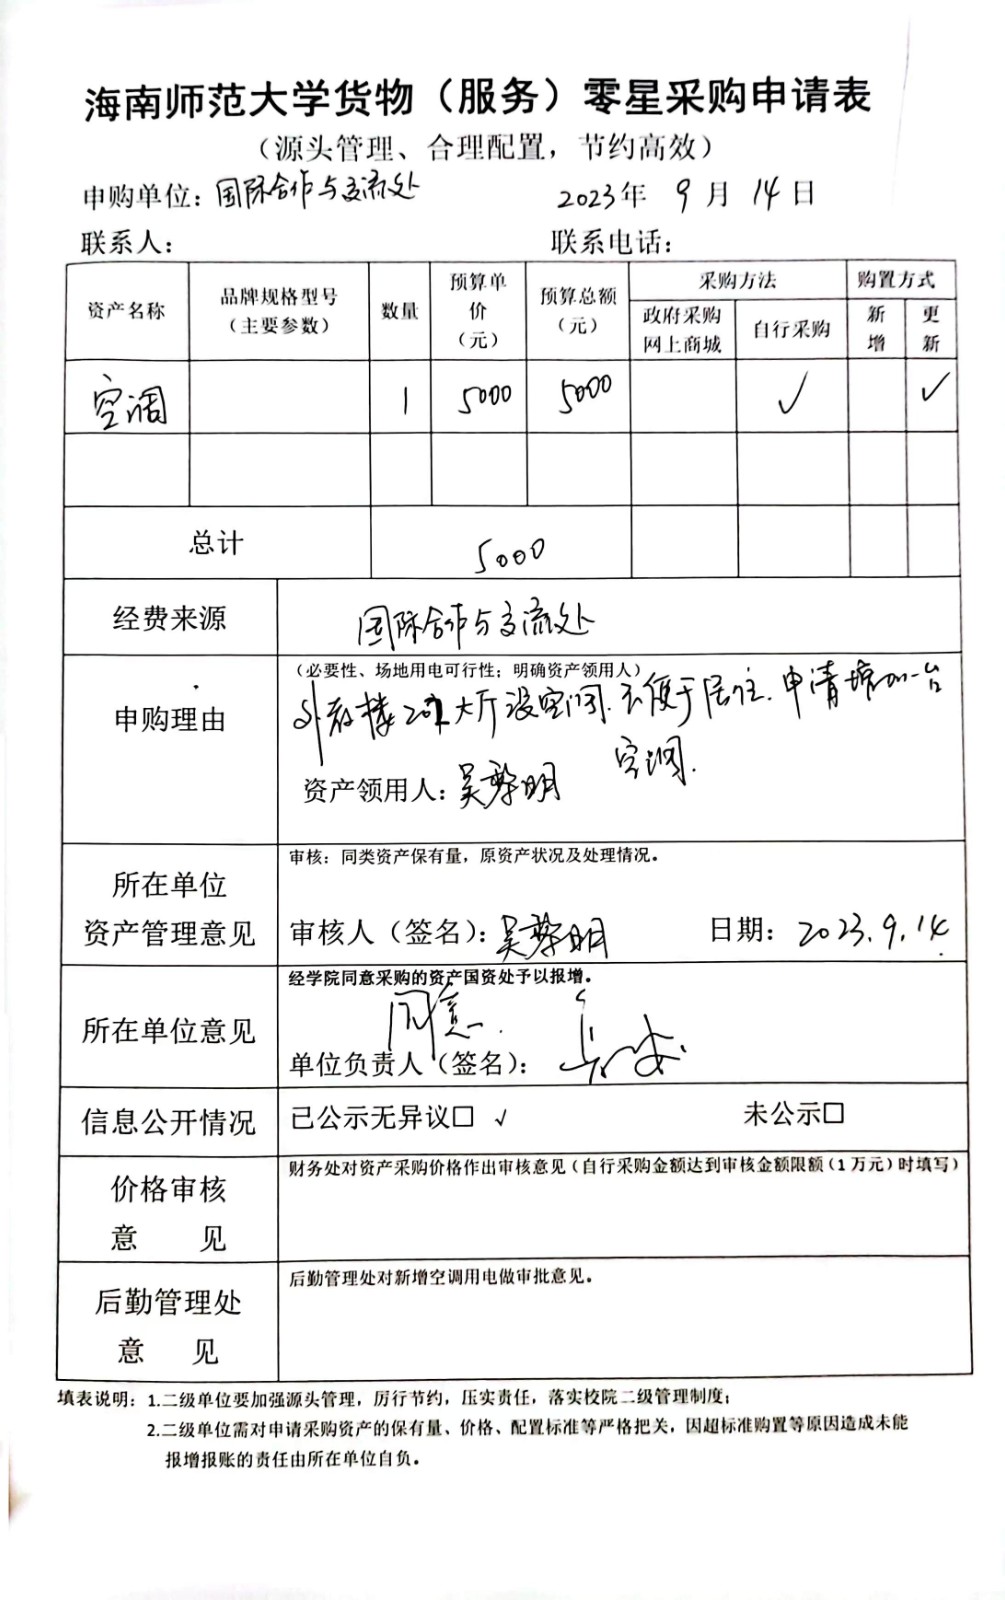 海南师范大学货物（服务）零星采购申请表
（源头管理、合理配置，节约高效）
申购单位：国际合作与交流处 2023年 9月 14日
联系人： 联系电话：
资产名称 品牌规格型号（主要参数） 数量 预算单价（元） 预算总额（元） 采购方法 购置方式
政府采购网上商城 自行采购 新增 更新
空调 1 5000 5000 ✓ ✓
总计 5000
经费来源 国际合作与交流处
申购理由 （必要性、场地用电可行性；明确资产领用人）
外教楼201大厅没空调.不便于居住.申请增加一台
空调.
资产领用人：吴黎明
所在单位资产管理意见 审核：同类资产保有量，原资产状况及处理情况。
审核人（签名）：吴黎明 日期：2023.9.14
所在单位意见 经学院同意采购的资产国资处予以报增。
同意.
单位负责人（签名）：
信息公开情况 已公示无异议□ √ 未公示□
价格审核意 见 财务处对资产采购价格作出审核意见（自行采购金额达到审核金额限额（1万元）时填写）
后勤管理处意 见 后勤管理处对新增空调用电做审批意见。
填表说明：1.二级单位要加强源头管理，厉行节约，压实责任，落实校院二级管理制度；
2.二级单位需对申请采购资产的保有量、价格、配置标准等严格把关，因超标准购置等原因造成未能
报增报账的责任由所在单位自负。